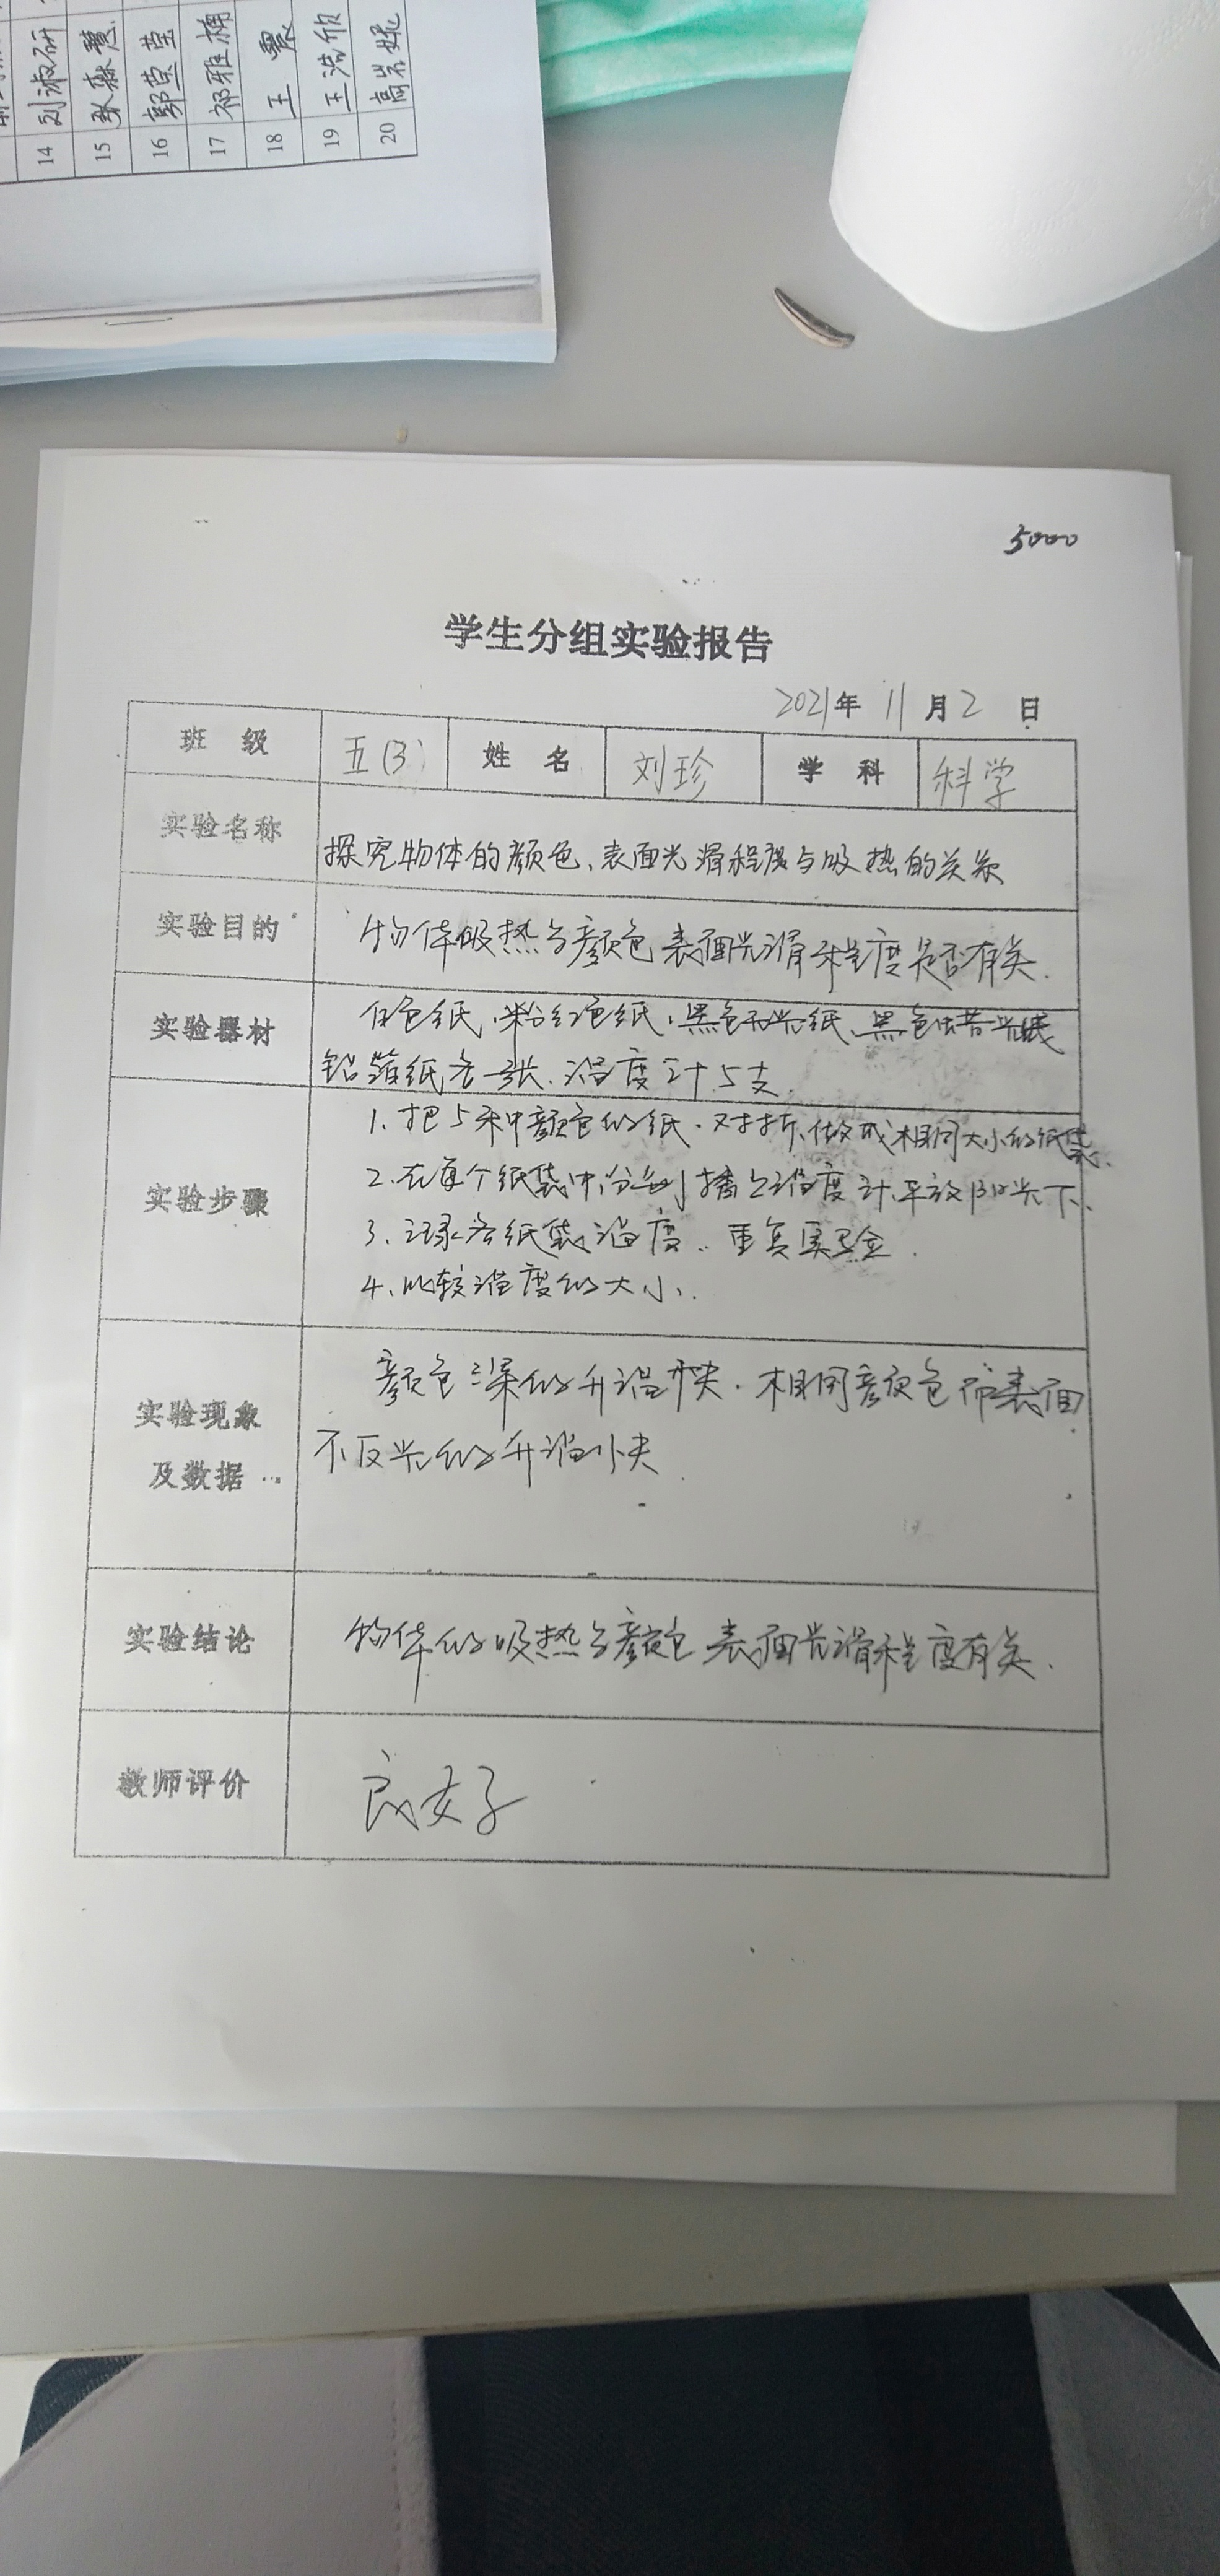 14 刘淑研
15 张森慧
16 郭莹莹
17 祁雅楠
18 王
19 王浩欣
20 高岩妮
5000
学生分组实验报告
2021年 11月2 日
班 级 五(3) 姓 名 刘珍 学 科 科学
实验名称 探究物体的颜色、表面光滑程度与吸热的关系
实验目的 物体吸热与颜色表面光滑程度是否有关.
实验器材 白色纸、粉红色纸、黑色光纸、黑色蜡光纸
铝箔纸各一张、温度计5支.
实验步骤 1、把5种颜色的纸、对折、做成相同大小的纸袋.
2、在每个纸袋中,分别插上温度计、平放阳光下、
3、记录各纸袋温度、重复实验.
4、比较温度的大小、
实验现象 颜色深的升温快、相同颜色而表面
及数据 不反光的升温快
实验结论 物体的吸热与颜色表面光滑程度有关.
教师评价 良好